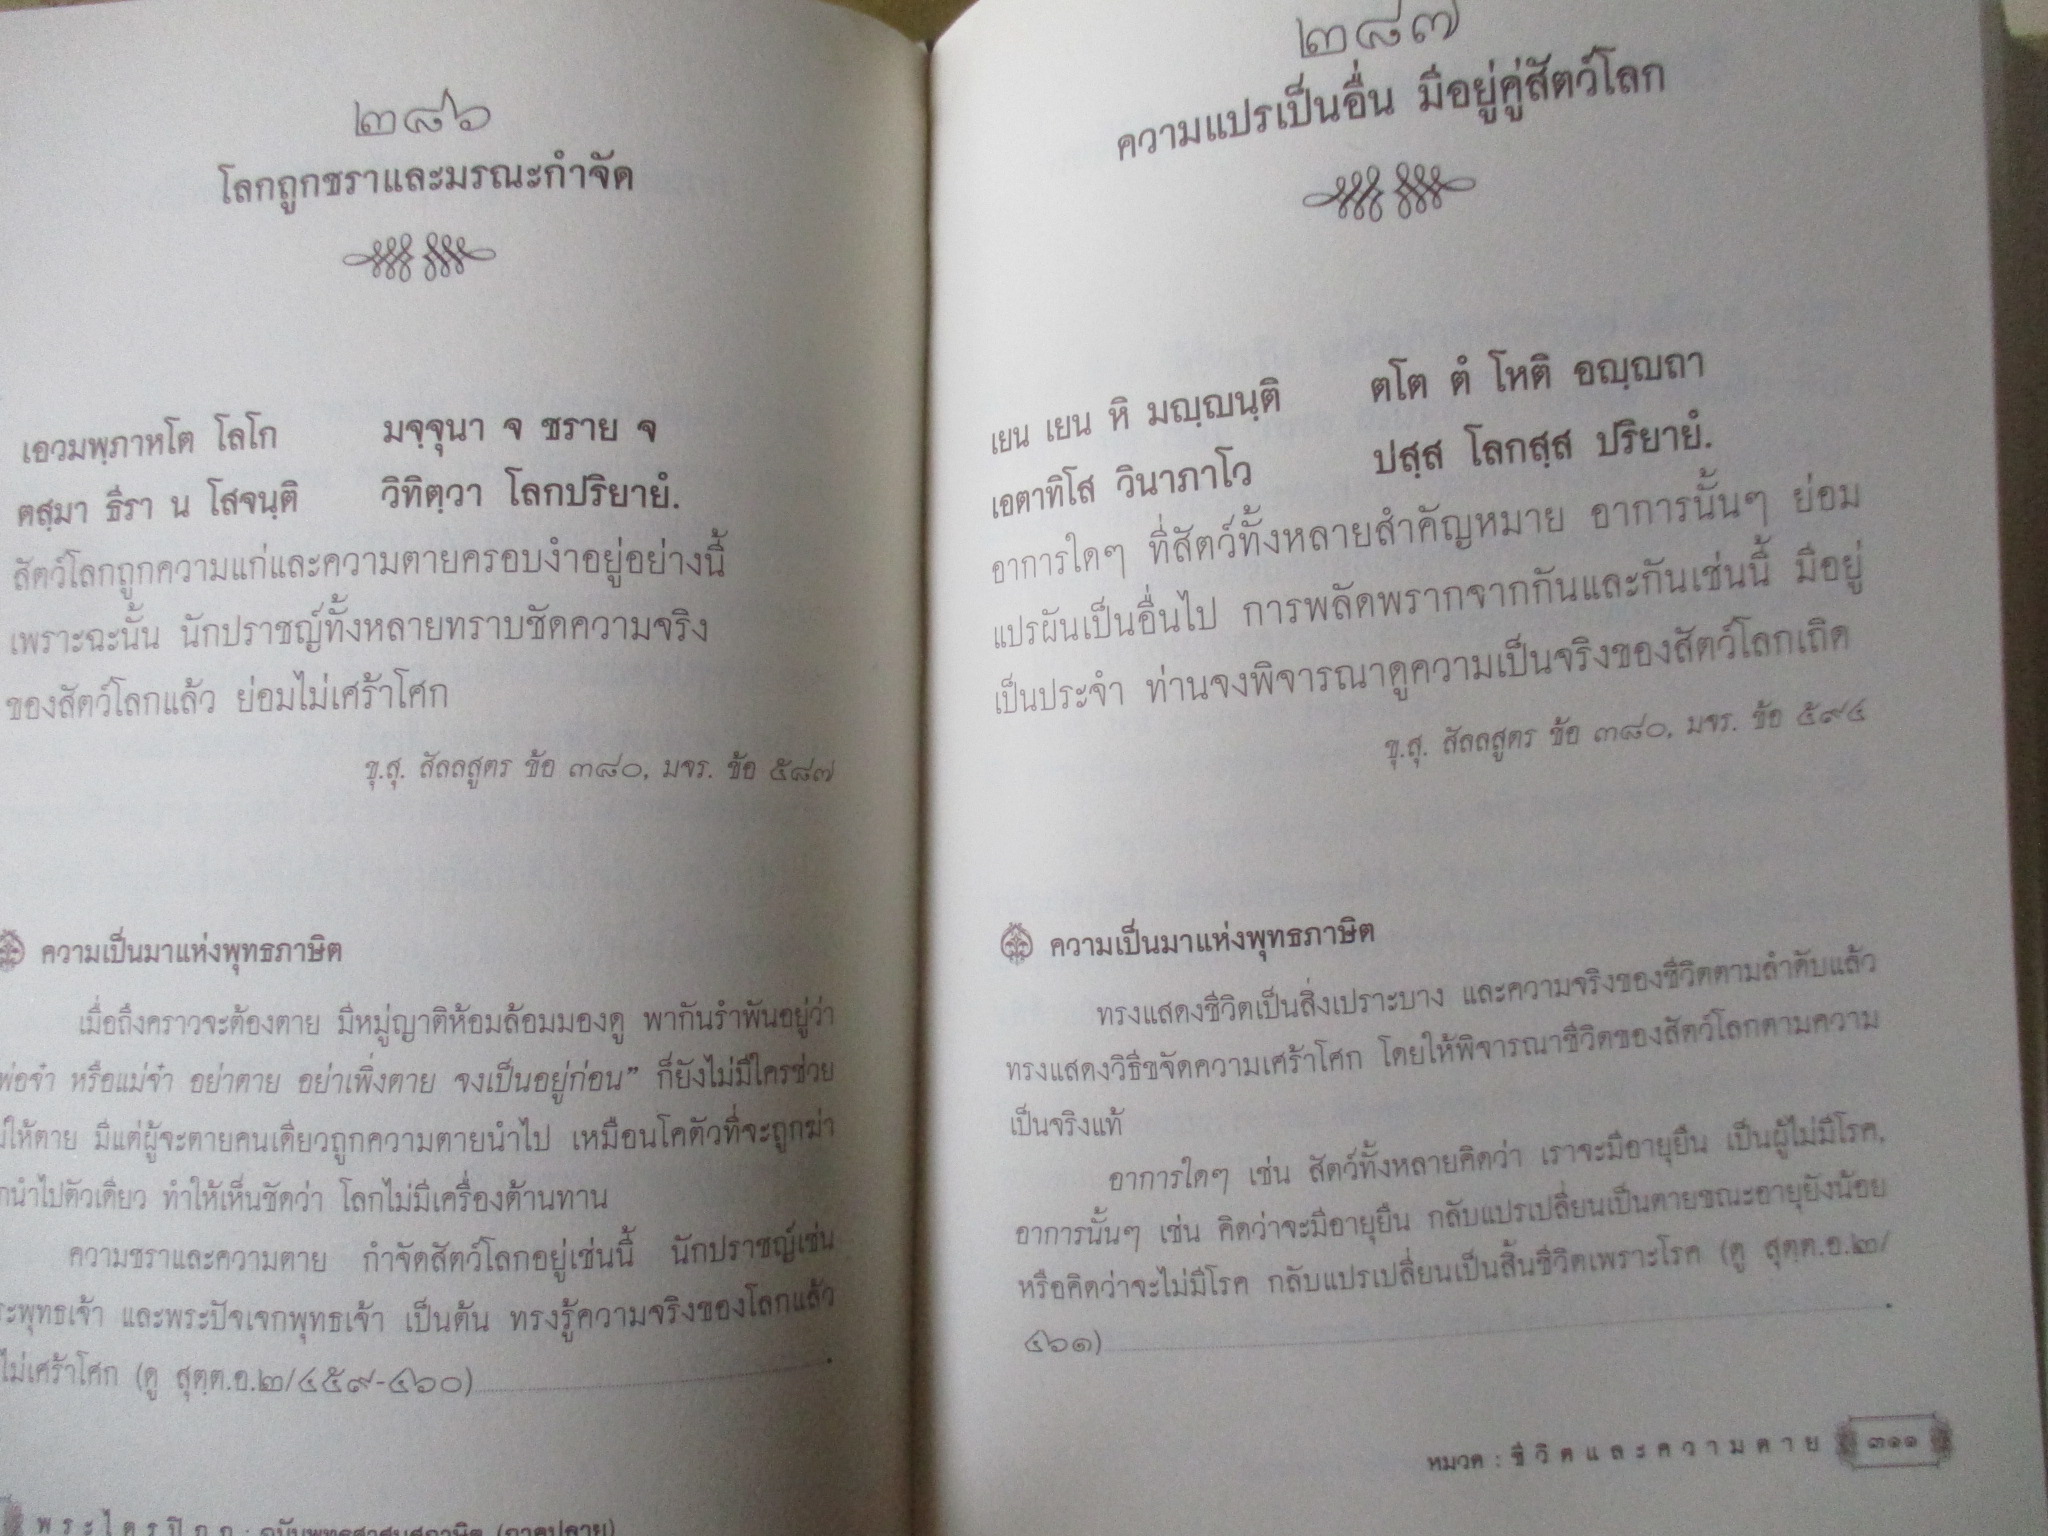 ๒๘๖
โลกถูกชราและมรณะกำจัด
เอวมพฺภาหโต โลโก มจฺจุนา จ ชราย จ
ตสฺมา ธีรา น โสจนฺติ วิทิตฺวา โลกปริยายํ.
สัตว์โลกถูกความแก่และความตายครอบงำอยู่อย่างนี้
เพราะฉะนั้น นักปราชญ์ทั้งหลายทราบชัดความจริง
ของสัตว์โลกแล้ว ย่อมไม่เศร้าโศก
ขุ.สุ. สัลลสูตร ข้อ ๓๘๐, มจร. ข้อ ๕๘๗
ความเป็นมาแห่งพุทธภาษิต
เมื่อถึงคราวจะต้องตาย มีหมู่ญาติห้อมล้อมมองดู พากันรำพันอยู่ว่า
พ่อจ๋า หรือแม่จ๋า อย่าตาย อย่าเพิ่งตาย จงเป็นอยู่ก่อน” ก็ยังไม่มีใครช่วย
ให้ตาย มีแต่ผู้จะตายคนเดียวถูกความตายนำไป เหมือนโคตัวที่จะถูกฆ่า
นำไปตัวเดียว ทำให้เห็นชัดว่า โลกไม่มีเครื่องต้านทาน
ความชราและความตาย กำจัดสัตว์โลกอยู่เช่นนี้ นักปราชญ์เช่น
พระพุทธเจ้า และพระปัจเจกพุทธเจ้า เป็นต้น ทรงรู้ความจริงของโลกแล้ว
ไม่เศร้าโศก (ดู สุตฺต.อ.๒/๔๕๙-๔๖๐)
พระไตรปิฎก : ฉบับพุทธศาสนสุภาษิต (ภาคปลาย)
๒๘๗
ความแปรเป็นอื่น มีอยู่คู่สัตว์โลก
เยน เยน หิ มญฺญนฺติ ตโต ตํ โหติ อญฺญถา
เอตาทิโส วินาภาโว ปสฺส โลกสฺส ปริยายํ.
อาการใดๆ ที่สัตว์ทั้งหลายสำคัญหมาย อาการนั้นๆ ย่อม
แปรผันเป็นอื่นไป การพลัดพรากจากกันและกันเช่นนี้ มีอยู่
เป็นประจำ ท่านจงพิจารณาดูความเป็นจริงของสัตว์โลกเถิด
ขุ.สุ. สัลลสูตร ข้อ ๓๘๐, มจร. ข้อ ๕๙๔
ความเป็นมาแห่งพุทธภาษิต
ทรงแสดงชีวิตเป็นสิ่งเปราะบาง และความจริงของชีวิตตามลำดับแล้ว
ทรงแสดงวิธีขจัดความเศร้าโศก โดยให้พิจารณาชีวิตของสัตว์โลกตามความ
เป็นจริงแท้
อาการใดๆ เช่น สัตว์ทั้งหลายคิดว่า เราจะมีอายุยืน เป็นผู้ไม่มีโรค,
อาการนั้นๆ เช่น คิดว่าจะมีอายุยืน กลับแปรเปลี่ยนเป็นตายขณะอายุยังน้อย
หรือคิดว่าจะไม่มีโรค กลับแปรเปลี่ยนเป็นสิ้นชีวิตเพราะโรค (ดู สุตฺต.อ.๒/
๔๖๑)
หมวด : ชีวิตและความตาย ๓๑๑